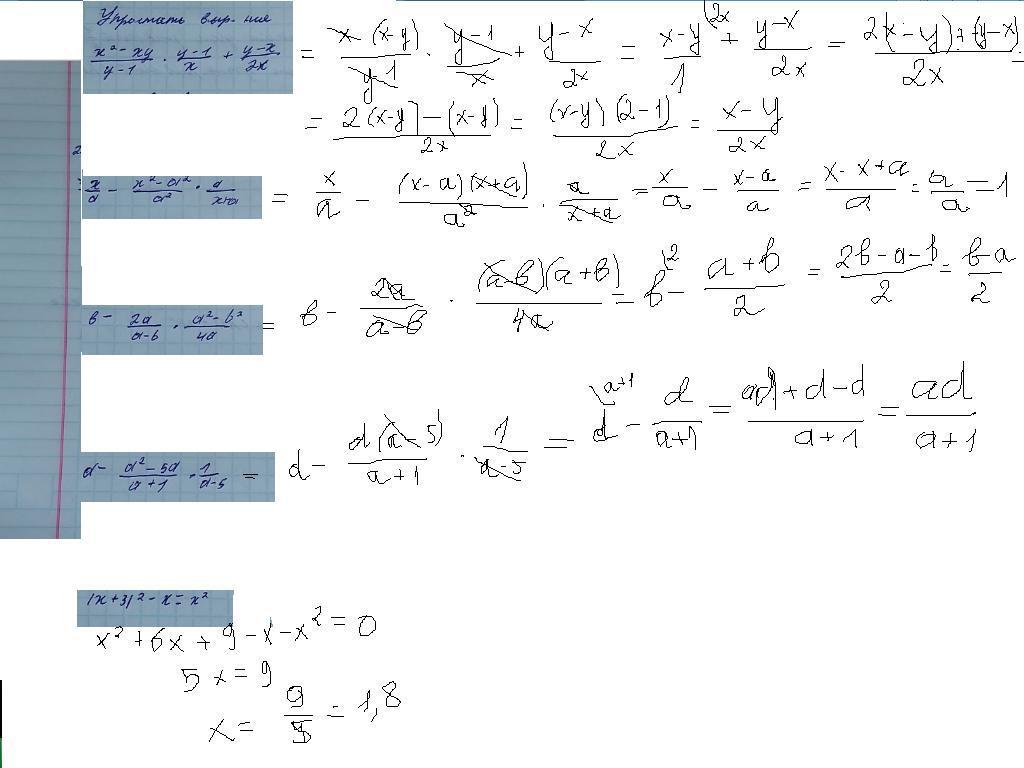 Упростить выр-ния
x² - xy / y-1 · y-1 / x + y-x / 2x = x·(x-y) / y-1 · y-1 / x + y-x / 2x = x-y / 1 (2x + y-x / 2x = 2(x-y)+(y-x) / 2x =
= 2(x-y)-(x-y) / 2x = (x-y)(2-1) / 2x = x-y / 2x
x / a - x²-a² / a² · a / x+a = x / a - (x-a)(x+a) / a² · a / x+a = x / a - x-a / a = x-x+a / a = a / a = 1
b - 2a / a-b · a²-b² / 4a = b - 2a / a-b · (a-b)(a+b) / 4a = b \2 - a+b / 2 = 2b-a-b / 2 = b-a / 2
d - d²-5d / a+1 · 1 / d-5 = d - d(a-5) / a+1 · 1 / a-5 = d \a+1 - d / a+1 = ad+d-d / a+1 = ad / a+1
(x+3)² - x = x²
x² + 6x + 9 - x - x² = 0
5x = 9
x = 9 / 5 = 1,8